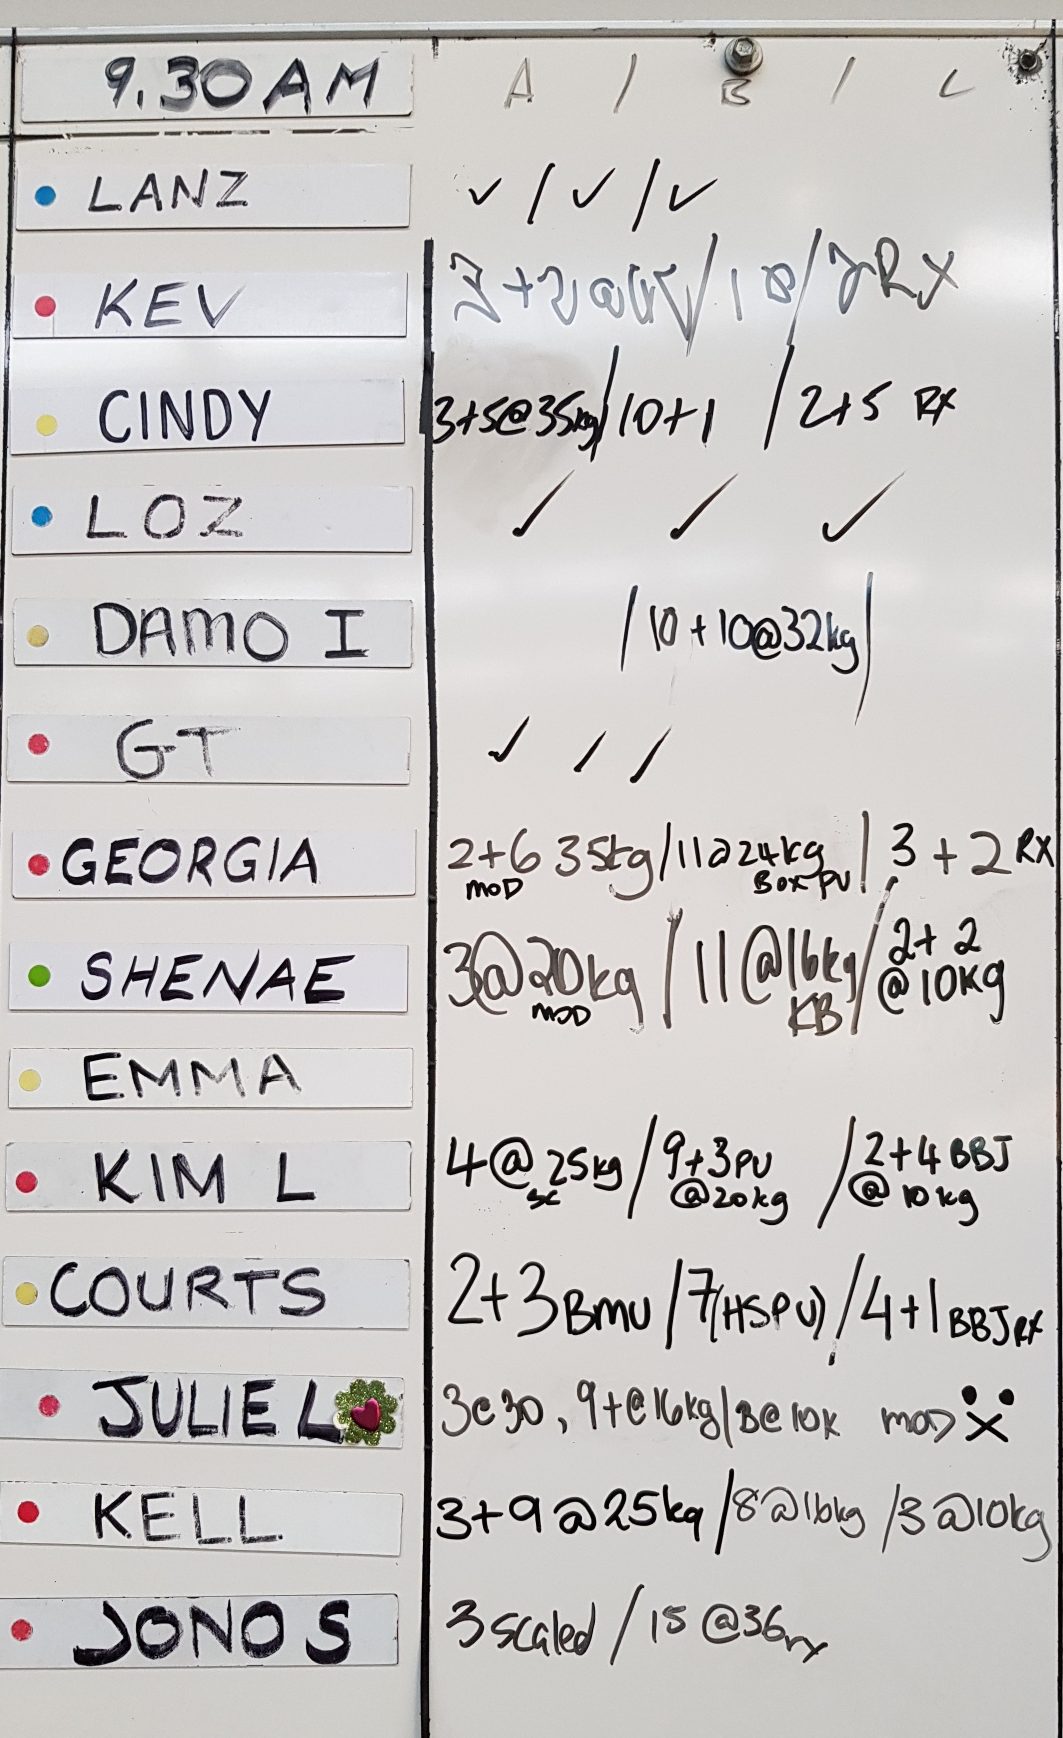 9.30AM A / B / C
LANZ ✓ / ✓ / ✓
KEV / / RX
CINDY 3+5@35kg / 10+1 / 2+5 RX
LOZ ✓ ✓ ✓
DAMO I / 10+10@32kg /
GT ✓ / /
GEORGIA 2+6 35kg / 11@24kg / 3+2 RX
MOD BOX PU
SHENAE 3@20kg / 11@16kg / 2+2
MOD KB @10KG
EMMA
KIM L 4@25kg / 9+3PU / 2+4 BBJ
SC @20kg @10kg
COURTS 2+3 BMU / 7(HSPU) / 4+1 BBJ RX
JULIE L 3@30, 9+@16kg / @10K MOD
KELL 3+9@25kg / 8@16kg / 3@10kg
JONO S 3 scaled / 15 @36 rx